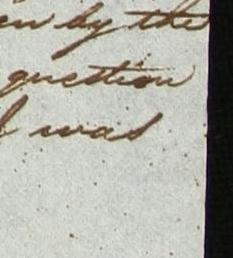 by the
question
was